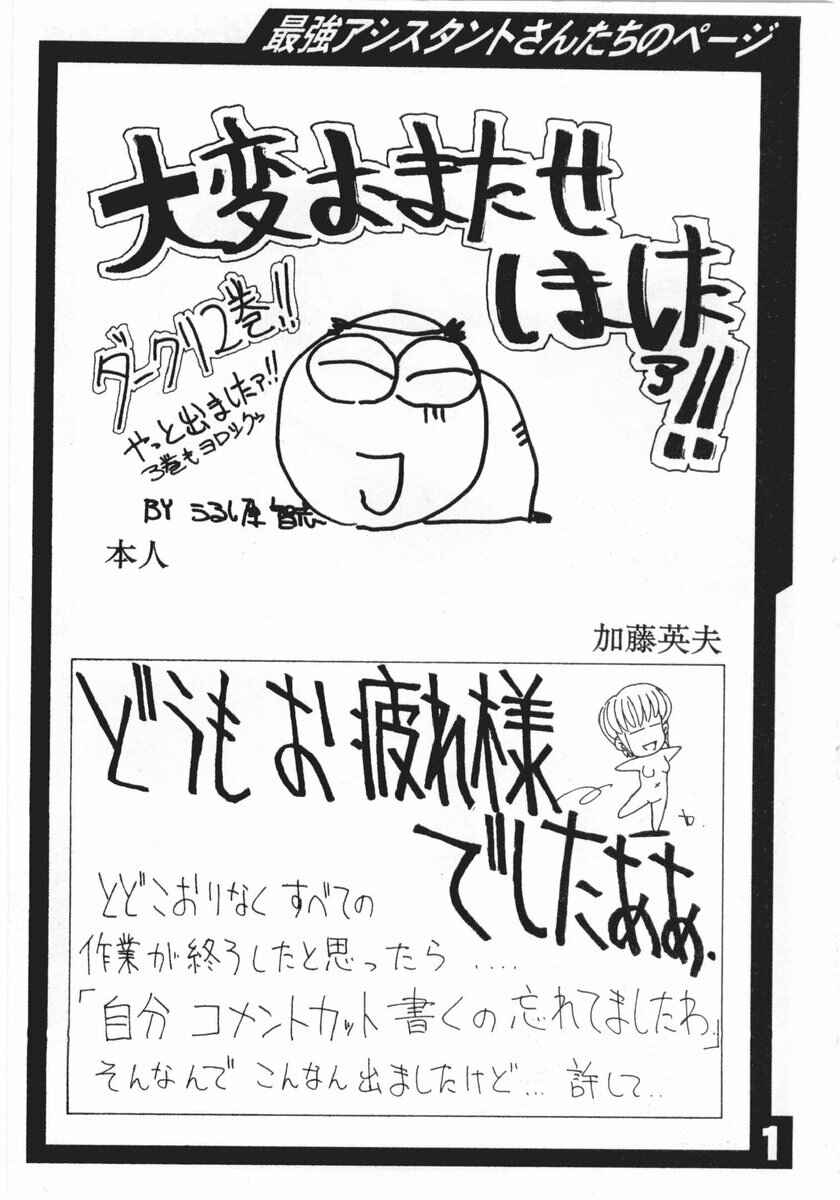 最強アシスタントさんたちのページ
大変おまたせ
しましたァ!!
ダーク12巻!!
やっと出ましたァ!!
3巻もヨロシクゥ
BY うるし原 智志
本人
加藤英夫
どうもお疲れ様
でしたぁぁ.
とどこおりなくすべての
作業が終ろしたと思ったら ....
「自分 コメントカット 書くの忘れてましたわ」
そんなんで こんなん出ましたけど... 許して..
1